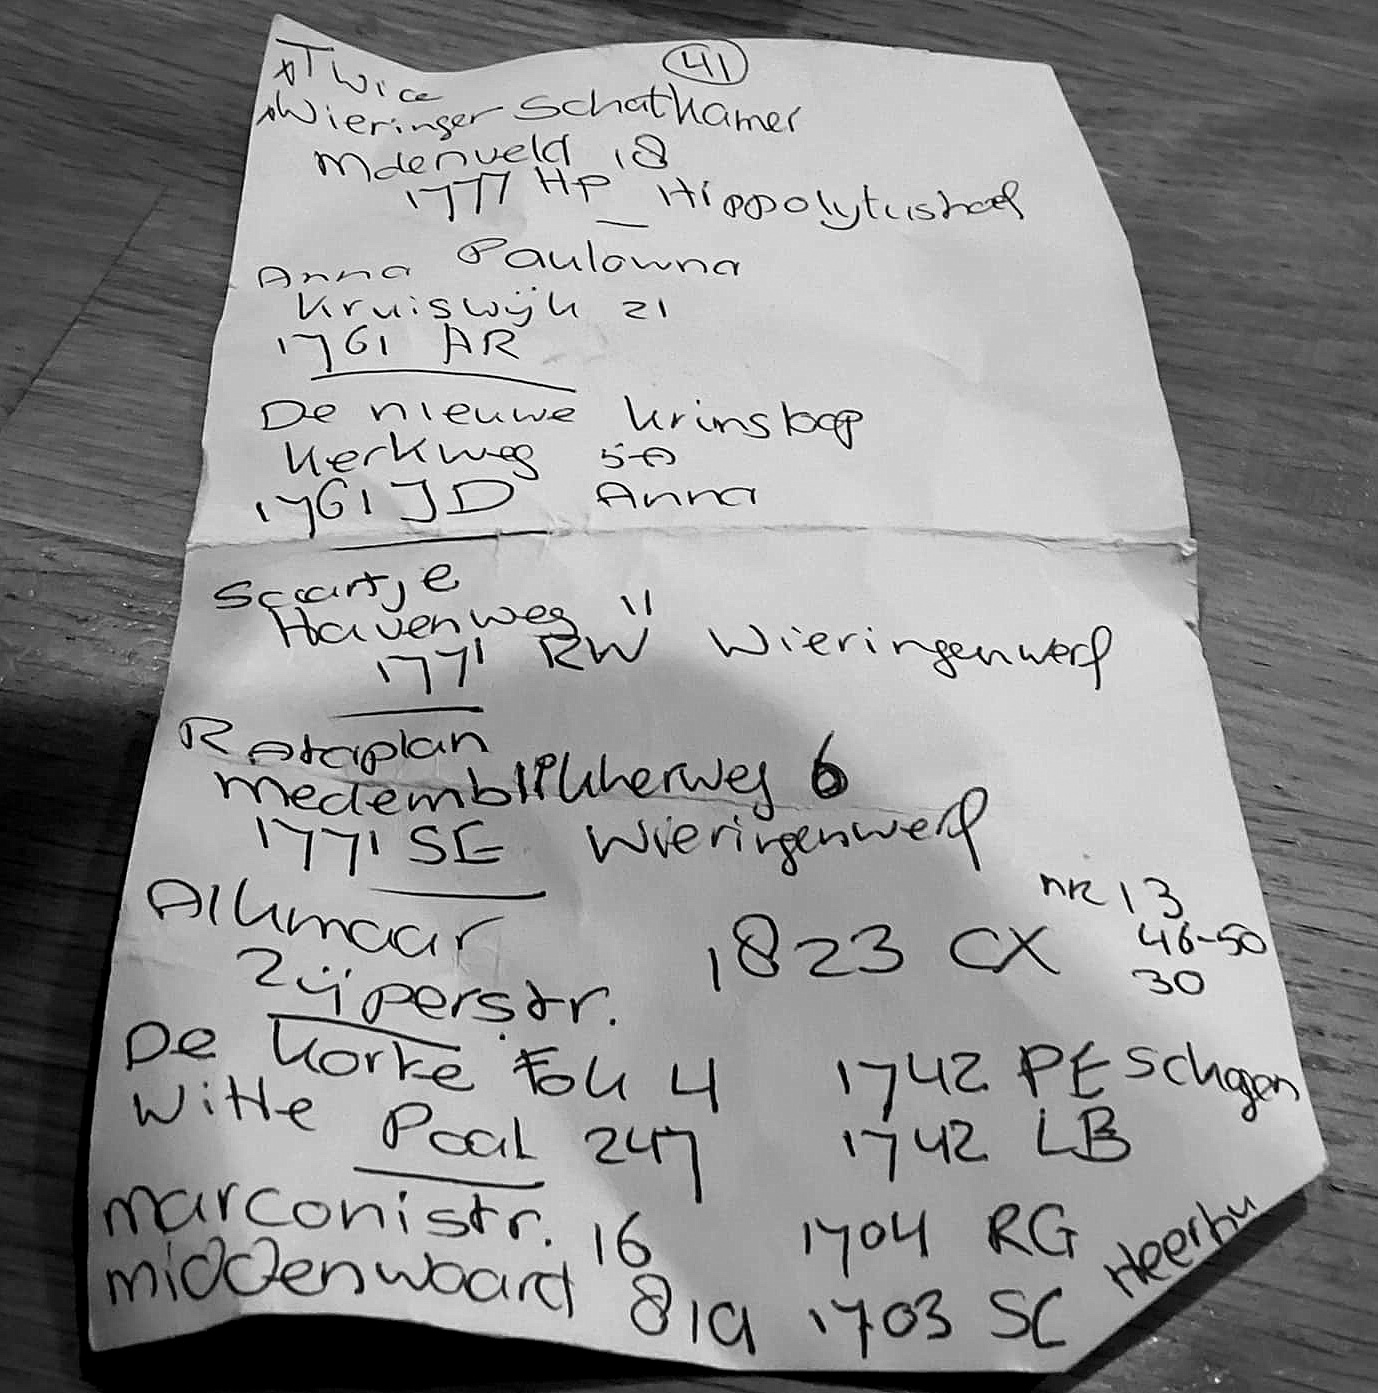 41
Twice
Wieringer Schatkamer
Molenveld 18
1777 HP Hippolytushoef
Anna Paulowna
Kruiswijk 21
1761 AR
De nieuwe Kringloop
Kerkweg 5A
1761 JD Anna
Saartje
Havenweg 11
1771 RW Wieringerwerf
Rataplan
Medemblikkerweg 6
1771 SE Wieringerwerf
Alkmaar
nr 13
Zijperstr. 1823 CX 46-50
30
De Korte Fok 4 1742 PE Schagen
Witte Paal 247 1742 LB
Marconistr. 16 1704 RG
Middenwaard 81a 1703 SC Heerhu